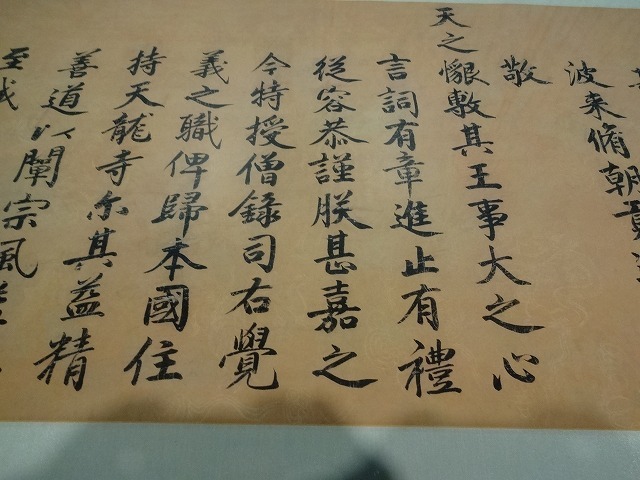 波来脩朝貢
敬
天之懇敷其王事大之心
言詞有章進止有禮
從容恭謹朕甚嘉之
今特授僧録司右覺
義之職俾歸本國住
持天龍寺尓其益精
善道以闡宗風
至哉